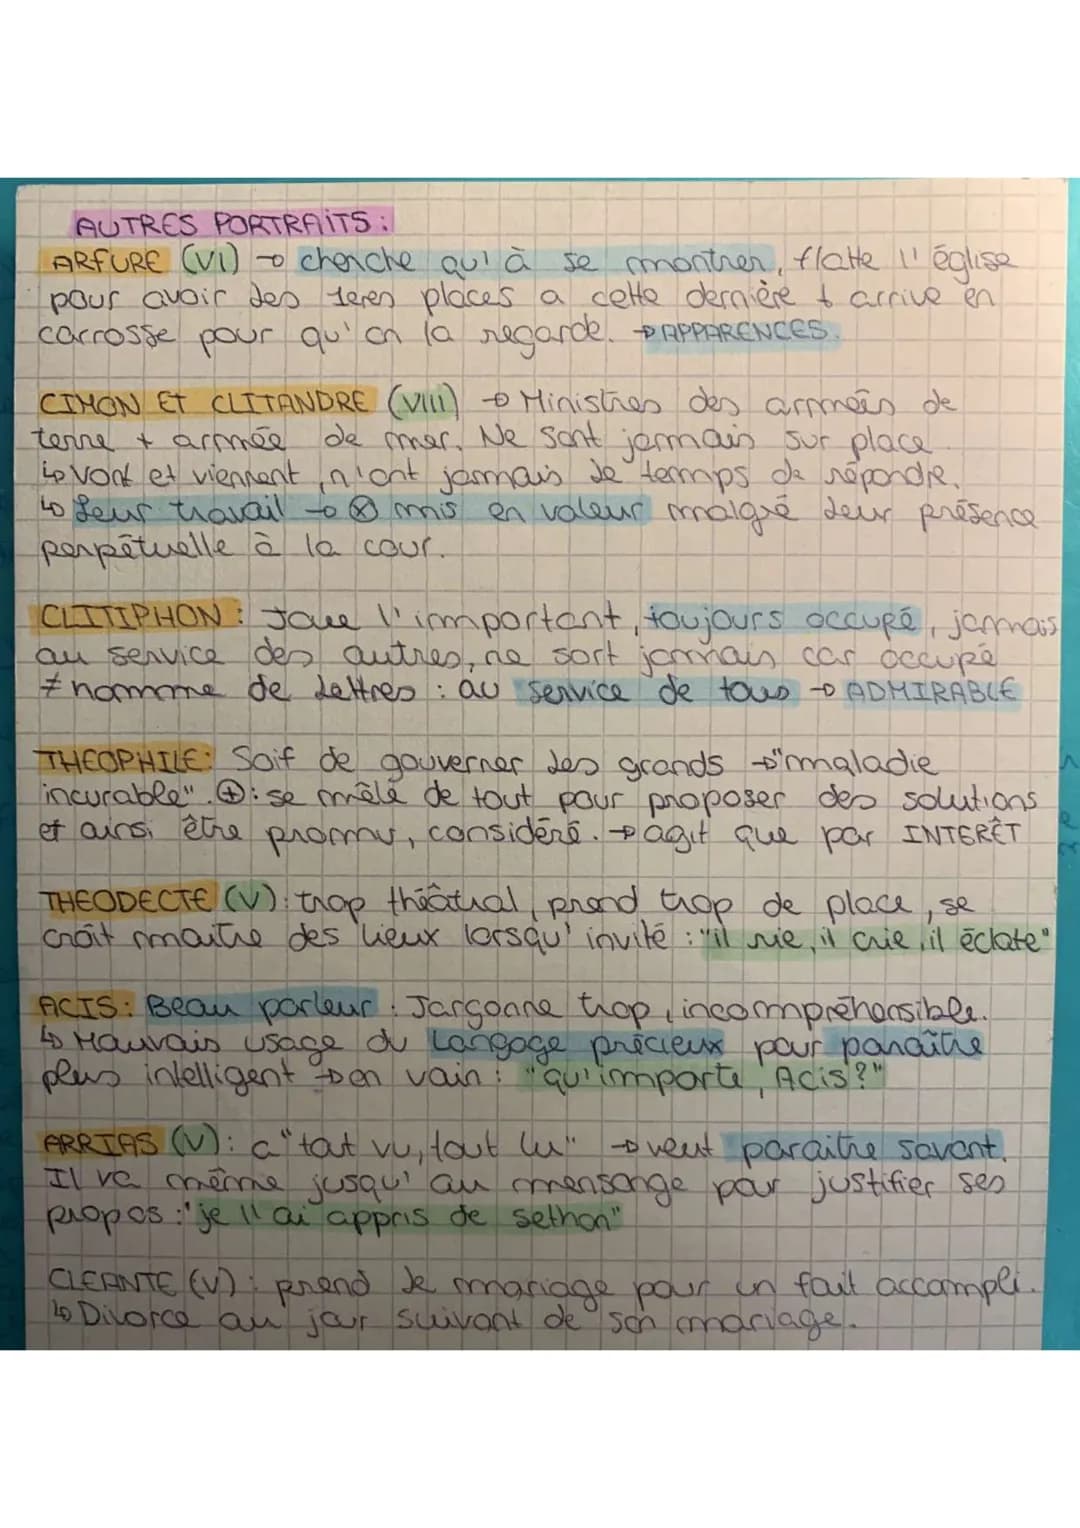 AUTRES PORTRAITS :
ARFURE (VI) → cherche qu'à se montrer, flatte l'église
pour avoir les 1eres places a cette dernière + arrive en
carrosse pour qu'on la regarde. → APPARENCES.
CIMON ET CLITANDRE (VIII) → Ministres des armées de
terre + armée de mer. Ne sont jamais sur place.
↳ vont et viennent, n'ont jamais le temps de répondre.
↳ Leur travail → ⊗ mis en valeur malgré leur présence
perpétuelle à la cour.
CLITIPHON : Joue l'important, toujours occupé, jamais
au service des autres, ne sort jamais car occupé
≠ homme de Lettres : au service de tous → ADMIRABLE
THEOPHILE : Soif de gouverner les grands → "maladie
incurable". ⊕ : se mêle de tout pour proposer des solutions
et ainsi être promu, considéré. → agit que par INTERÊT
THEODECTE (V) : trop théâtral, prend trop de place, se
croit maitre des lieux lorsqu'invité : "il rie, il crie, il éclate"
ACIS : Beau parleur : Jargonne trop, incompréhensible.
↳ Mauvais usage du Langage précieux pour paraître
plus intelligent → en vain : "qu'importe, Acis ?"
ARRIAS (V) : a "tout vu, tout lu" → veut paraitre savant.
Il va même jusqu'au mensonge pour justifier ses
propos : "je l'ai appris de sethon"
CLEANTE (V) : prend le mariage pour un fait accompli.
↳ Divorce au jour suivant de son mariage.